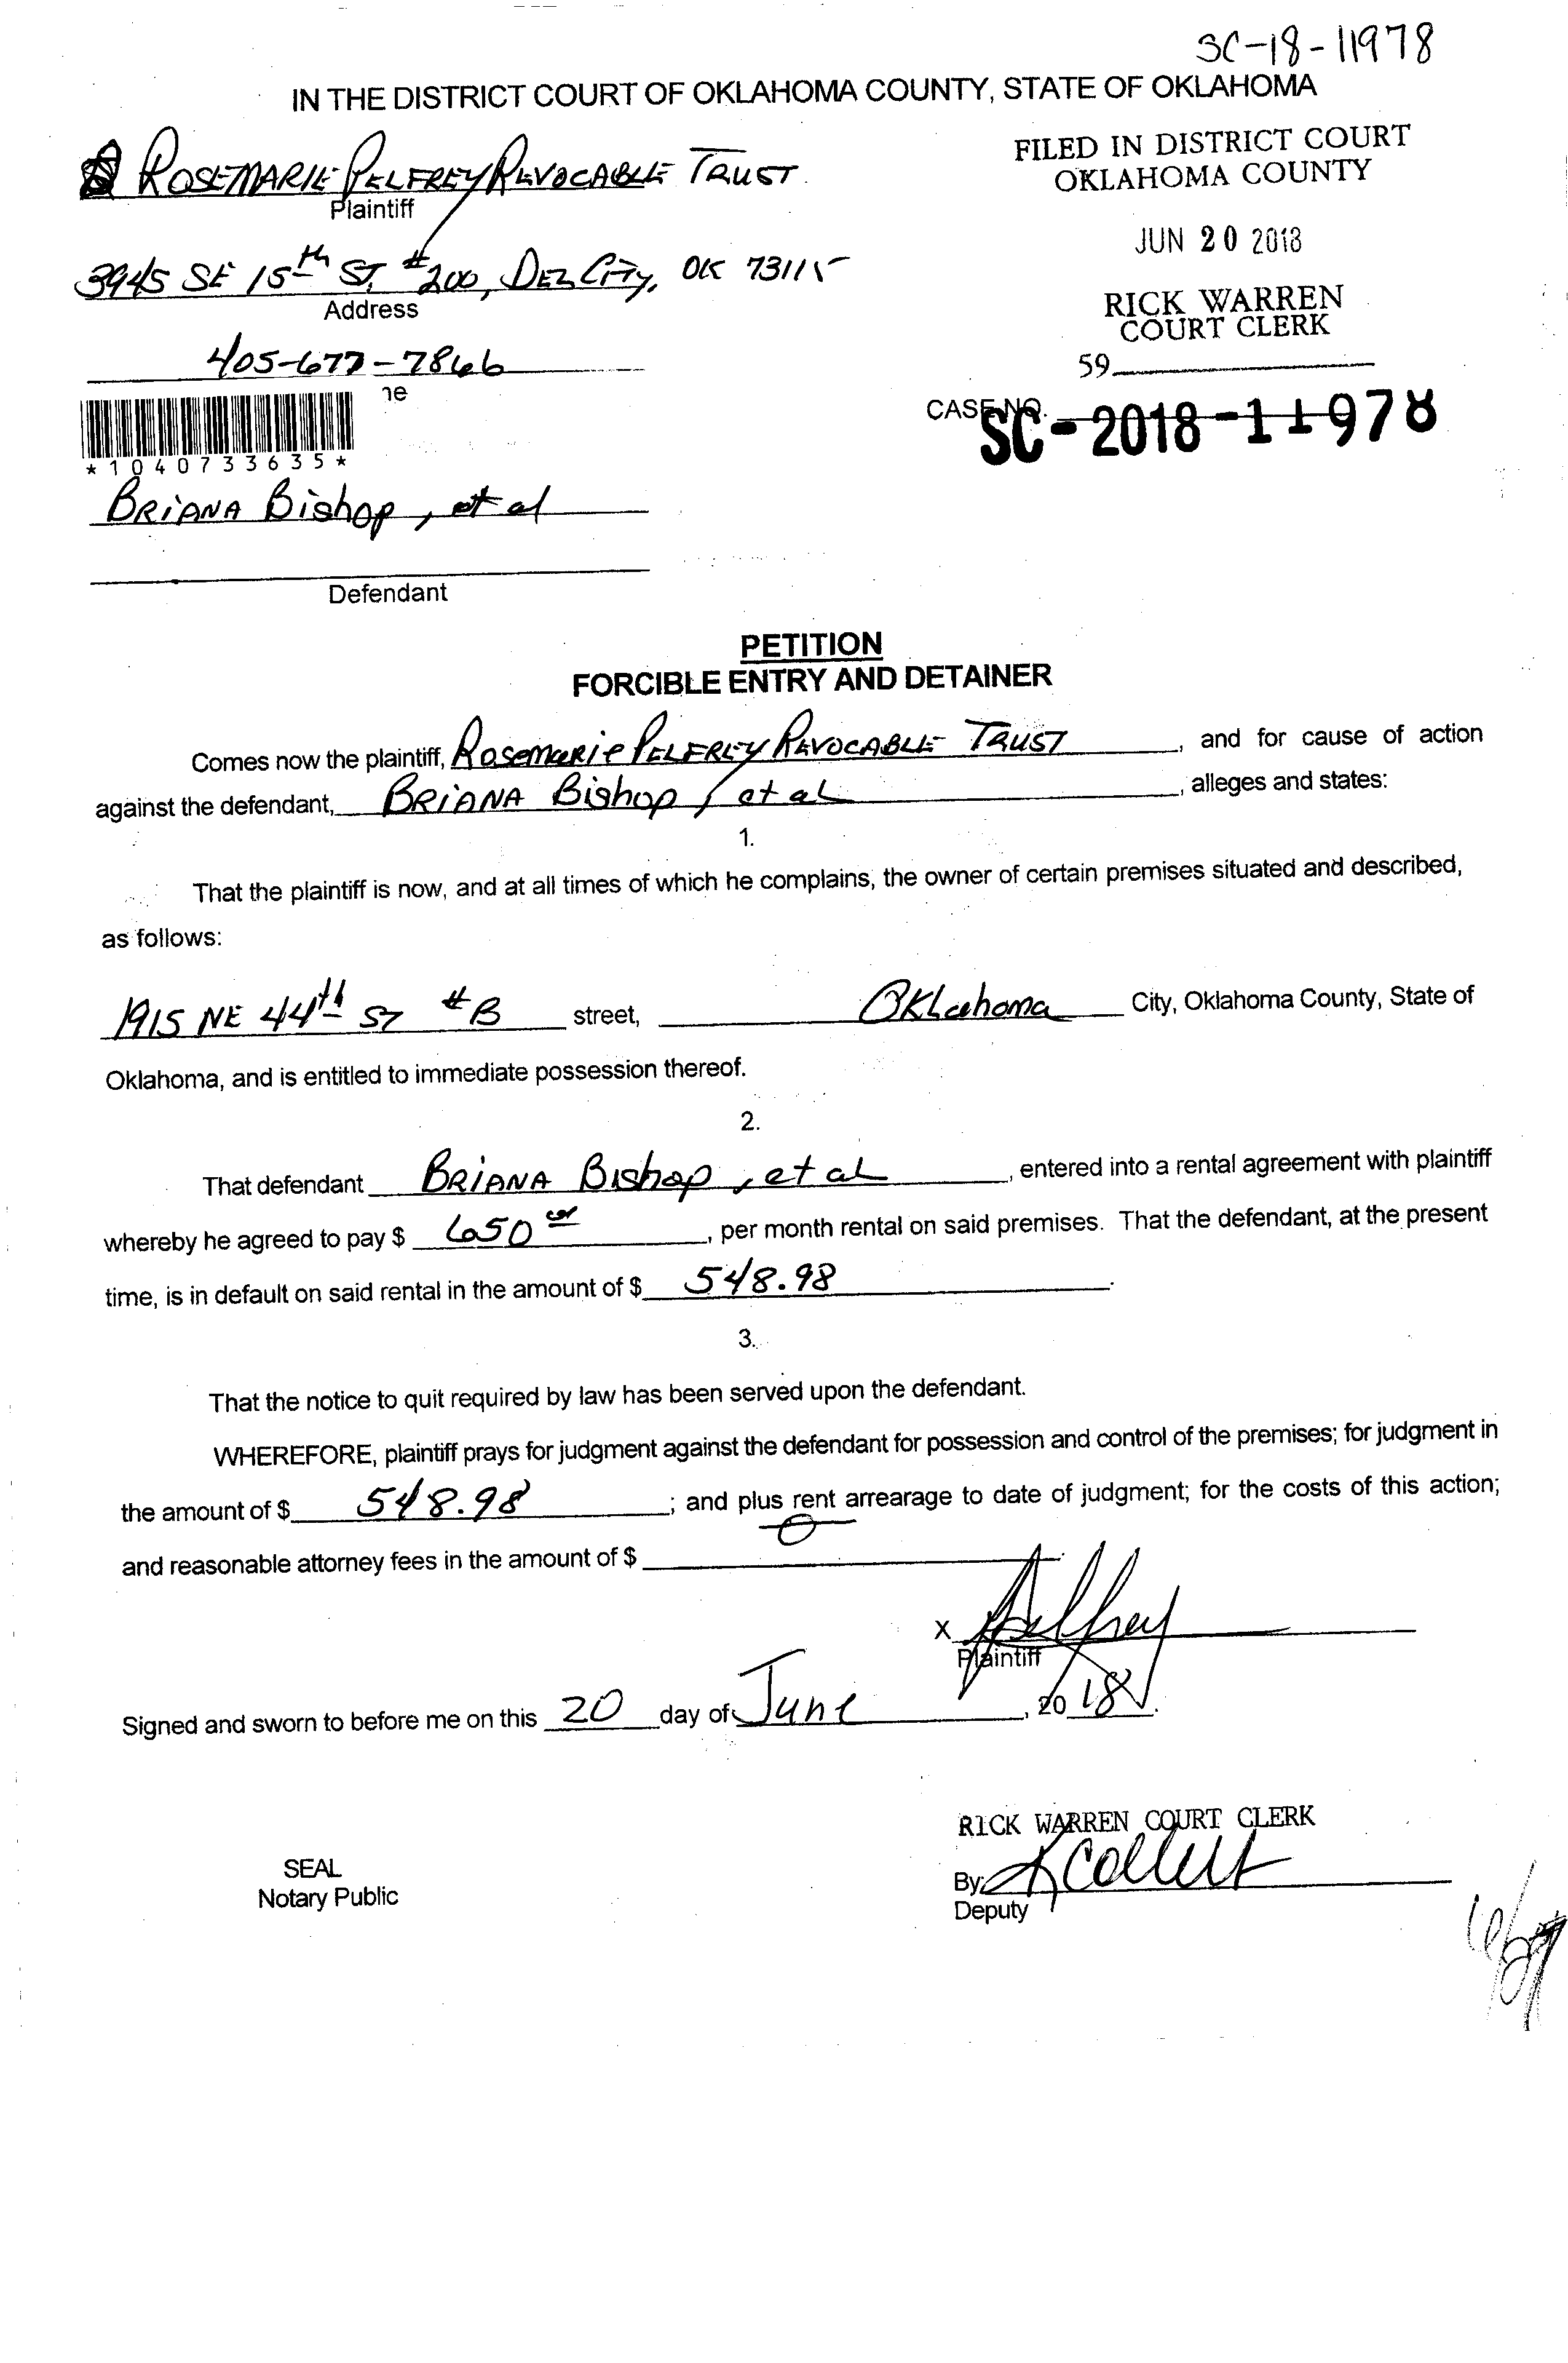 SC-18-11978
IN THE DISTRICT COURT OF OKLAHOMA COUNTY, STATE OF OKLAHOMA
ROSEMARIE PELFREY REVOCABLE TRUST
Plaintiff
FILED IN DISTRICT COURT
OKLAHOMA COUNTY
JUN 20 2018
RICK WARREN
COURT CLERK
59
3945 SE 15th ST. #200, DEL CITY, OK 73115
Address
405-677-7866
ne
CASE NO.
SC-2018-11978
*1040733635*
BRIANA Bishop, et al
Defendant
PETITION
FORCIBLE ENTRY AND DETAINER
Comes now the plaintiff, Rosemarie PELFREY REVOCABLE TRUST, and for cause of action
against the defendant, BRIANA Bishop, et al, alleges and states:
1.
That the plaintiff is now, and at all times of which he complains, the owner of certain premises situated and described,
as follows:
1915 NE 44th ST #B street, Oklahoma City, Oklahoma County, State of
Oklahoma, and is entitled to immediate possession thereof.
2.
That defendant BRIANA Bishop, et al, entered into a rental agreement with plaintiff
whereby he agreed to pay $ 650, per month rental on said premises. That the defendant, at the present
time, is in default on said rental in the amount of $ 548.98.
3.
That the notice to quit required by law has been served upon the defendant.
WHEREFORE, plaintiff prays for judgment against the defendant for possession and control of the premises; for judgment in
the amount of $ 548.98; and plus rent arrearage to date of judgment; for the costs of this action;
and reasonable attorney fees in the amount of $ 0
X Pelfrey
Plaintiff
Signed and sworn to before me on this 20 day of June, 2018.
RICK WARREN COURT CLERK
SEAL
Notary Public
By: K Collett
Deputy